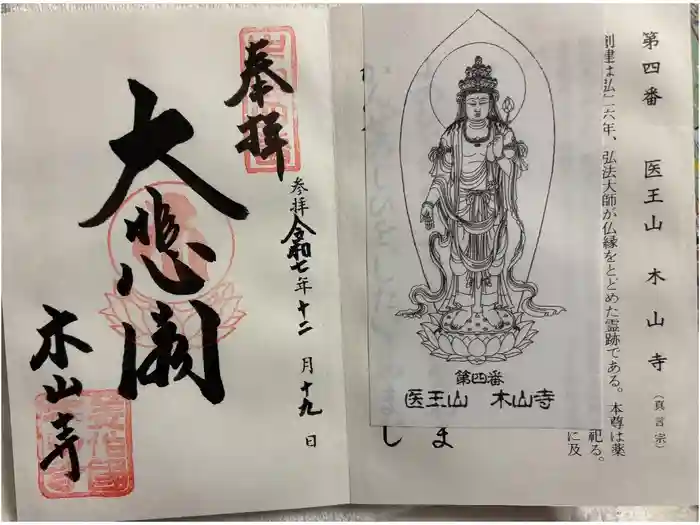 第四番 医王山 木山寺 (真言宗)
創建は弘仁六年、弘法大師が仏縁をとどめた霊跡である。本尊は薬
祀る。
に及
第四番
医王山 木山寺
ま
し
奉拝
参拝 令和七年十二月十九日
大悲閣
木山寺